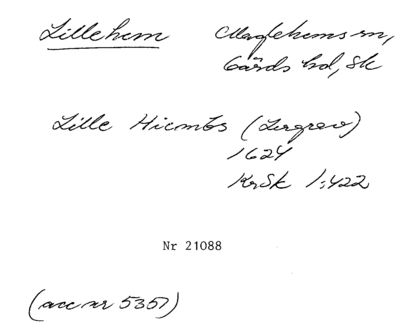 Lillehem Maglehems sn,
Gärds hd, Sk
Lille Hiembs (Lergrav)
1624
KrSk 1:422
Nr 21088
(acc nr 5357)